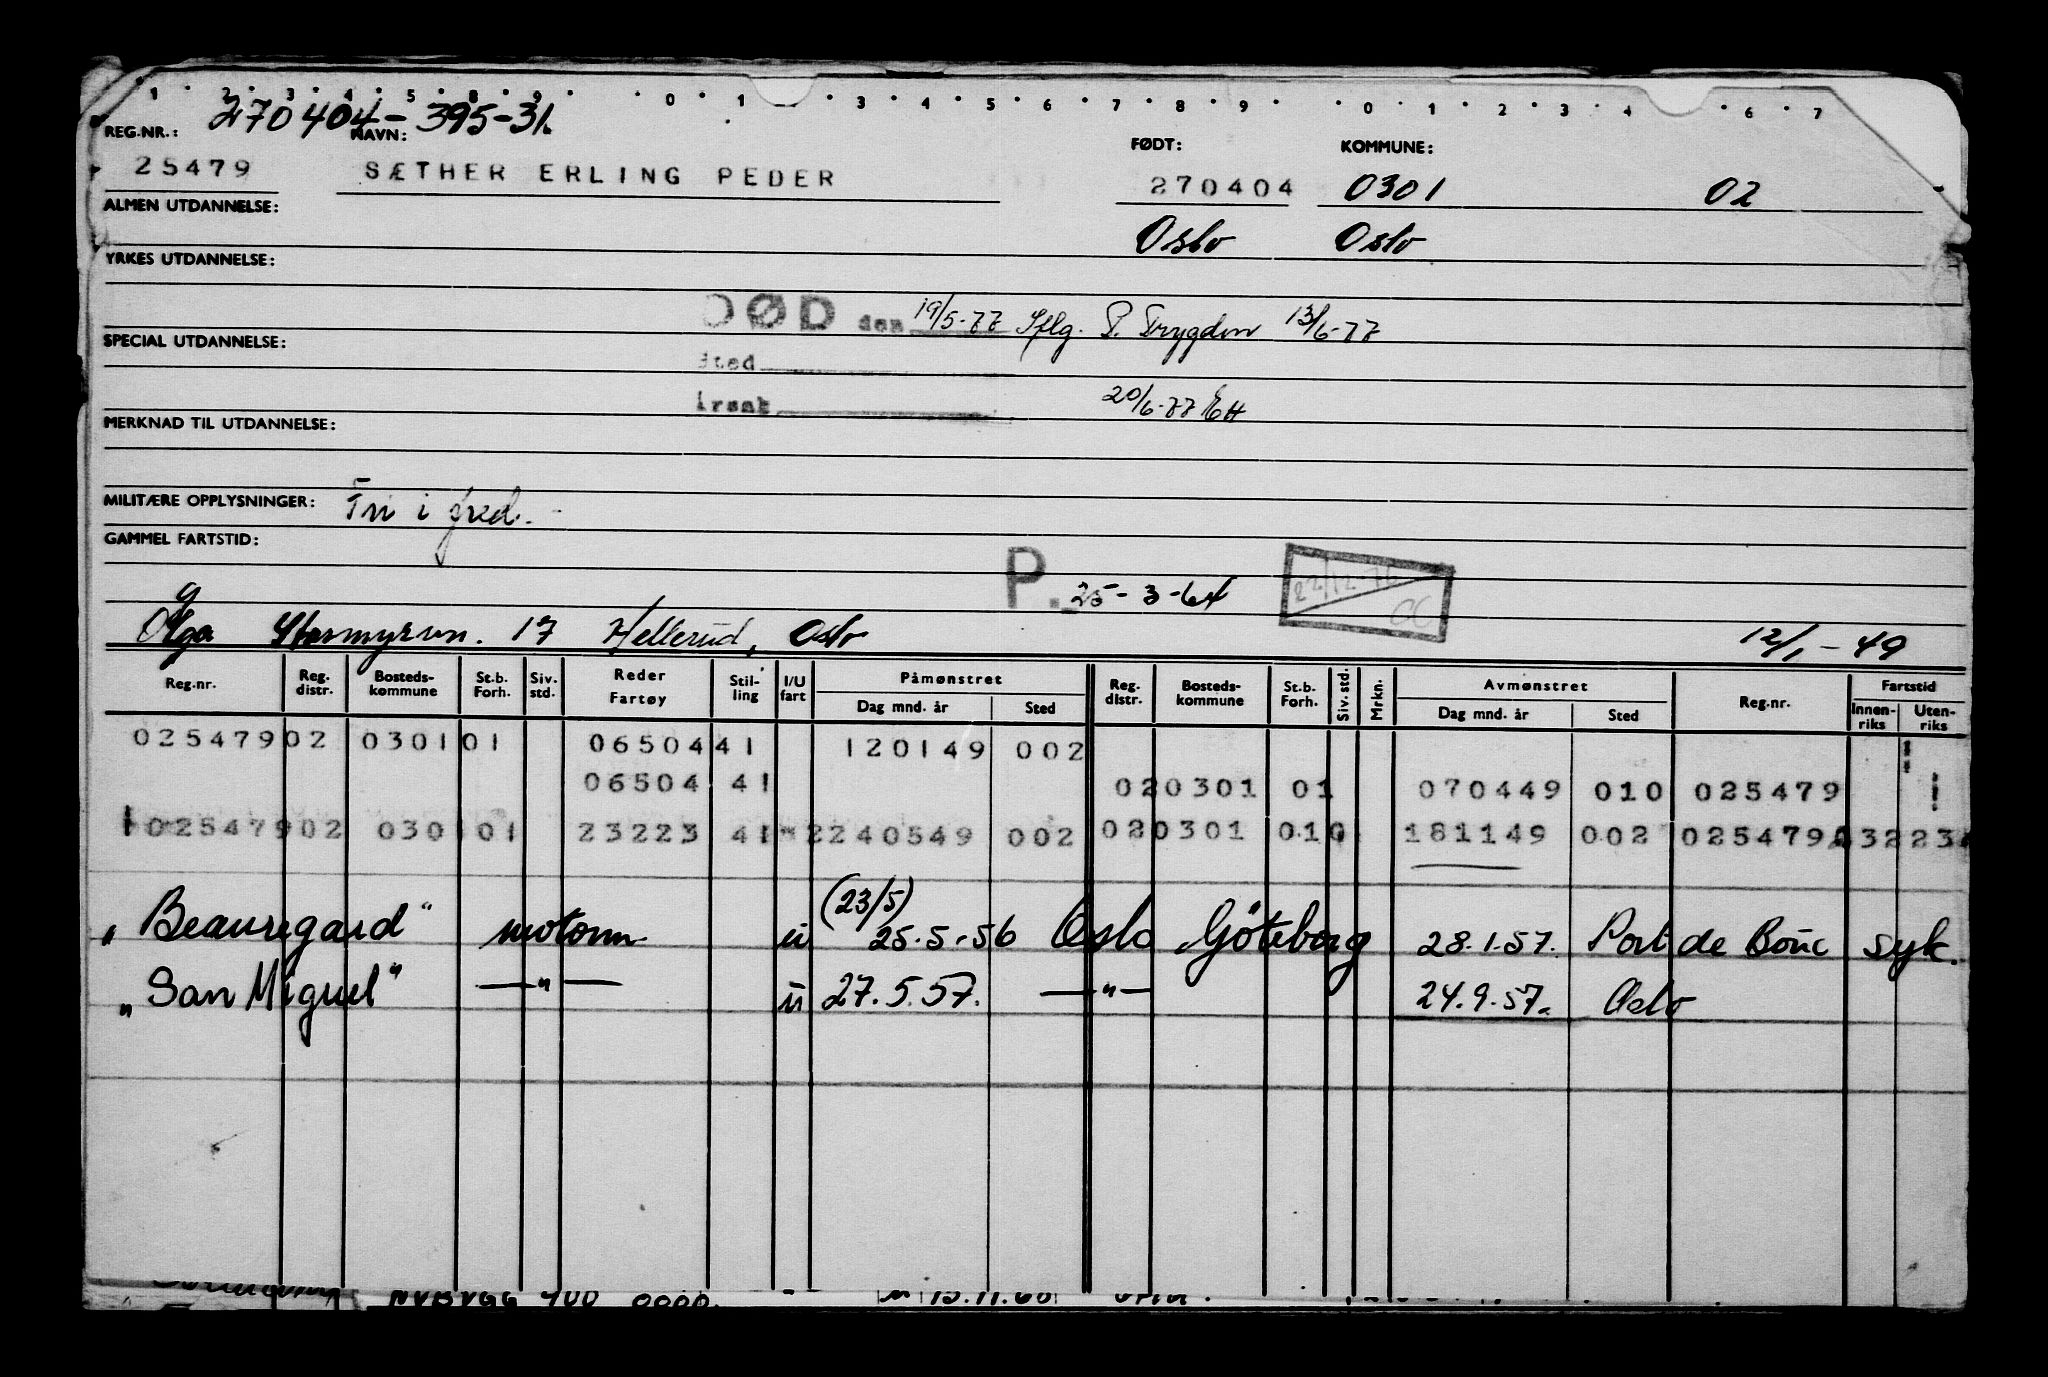 1 2 3 4 5 8 9 0 1 3 4 5 6 7 8 9 0 1 2 3 4 6 7
270404-395-31.
REG.NR.: NAVN: FØDT: KOMMUNE:
25479 SÆTHER ERLING PEDER 270404 0301 02
ALMEN UTDANNELSE: Oslo Oslo
YRKES UTDANNELSE:
DØD den 19/5-77 Iflg. P. Trygden 13/6-77
SPECIAL UTDANNELSE:
Sted
Årsak 20/6-77 EH
MERKNAD TIL UTDANNELSE:
MILITÆRE OPPLYSNINGER: Fri i fred.
GAMMEL FARTSTID:
P. 25-3-64 22/12-76 CC
Olga 17 Hellerud, Oslo 12/1-49
Reg.nr. Reg. distr. Bosteds-kommune St.b. Forh. Siv. std. Reder Fartøy Stil-ling I/U fart Påmønstret Reg. distr. Bosteds-kommune St.b. Forh. Siv. std. Mrkn. Avmønstret Reg.nr. Fartstid
Dag mnd. år Sted Dag mnd. år Sted Innen-riks Uten-riks
025479 02 0301 01 06504 41 120149 002
06504 41 02 0301 01 070449 010 025479
025479 02 030 01 23223 41 2 240549 002 02 0301 01 0 181149 002 025479 32 23
(23/5)
"Beauregard" motorm. u 25.5.56 Oslo Göteborg 28.1.57. Port de Bouc syk.
"San Miguel" —"— u 27.5.57. —"— 24.9.57. Oslo
15.11.60